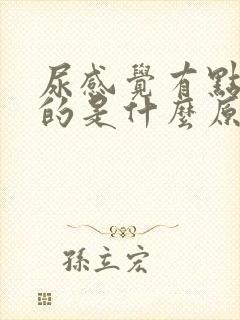 尿感覺有點
的是什麼原
孫立宏